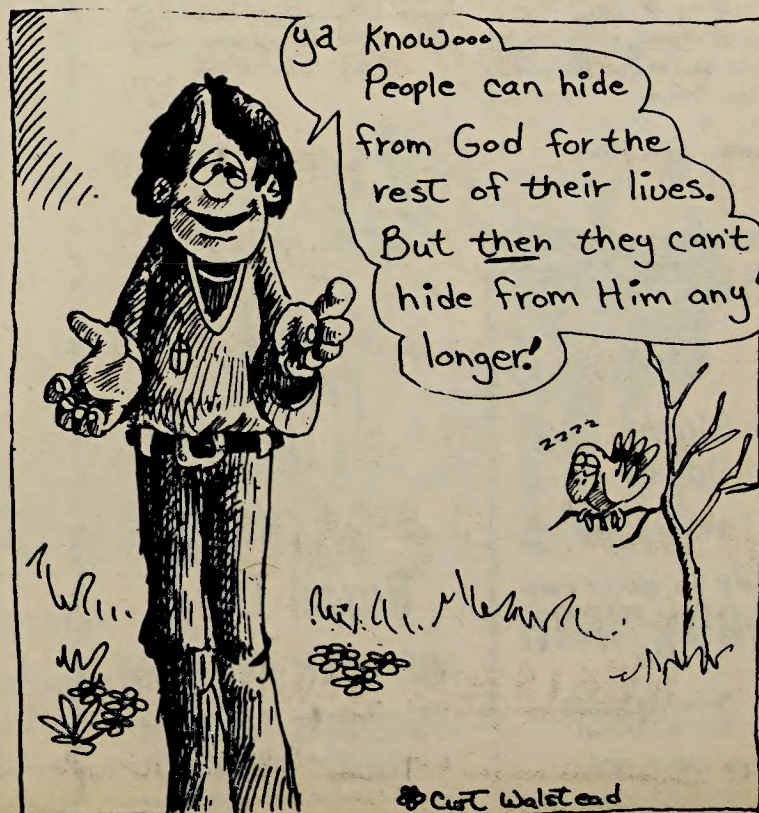 ya know...
People can hide
from God for the
rest of their lives.
But then they can't
hide from Him any
longer!
zzzz
Curt Walstead